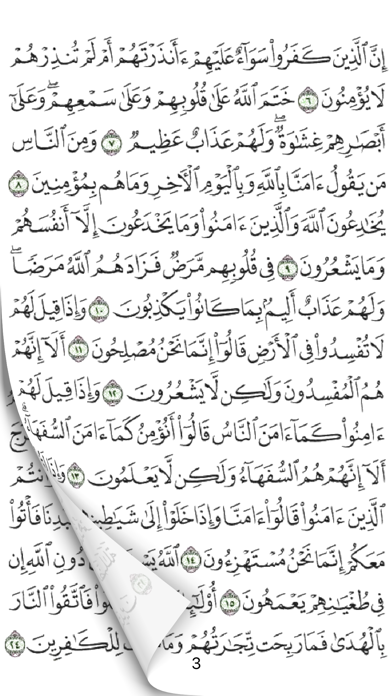 إِنَّ ٱلَّذِينَ كَفَرُوا۟ سَوَآءٌ عَلَيْهِمْ ءَأَنذَرْتَهُمْ أَمْ لَمْ تُنذِرْهُمْ
لَا يُؤْمِنُونَ ٦ خَتَمَ ٱللَّهُ عَلَىٰ قُلُوبِهِمْ وَعَلَىٰ سَمْعِهِمْ ۖ وَعَلَىٰٓ
أَبْصَـٰرِهِمْ غِشَـٰوَةٌ ۖ وَلَهُمْ عَذَابٌ عَظِيمٌ ٧ وَمِنَ ٱلنَّاسِ
مَن يَقُولُ ءَامَنَّا بِٱللَّهِ وَبِٱلْيَوْمِ ٱلْـَٔاخِرِ وَمَا هُم بِمُؤْمِنِينَ ٨
يُخَـٰدِعُونَ ٱللَّهَ وَٱلَّذِينَ ءَامَنُوا۟ وَمَا يَخْدَعُونَ إِلَّآ أَنفُسَهُمْ
وَمَا يَشْعُرُونَ ٩ فِى قُلُوبِهِم مَّرَضٌ فَزَادَهُمُ ٱللَّهُ مَرَضًا ۖ
وَلَهُمْ عَذَابٌ أَلِيمٌۢ بِمَا كَانُوا۟ يَكْذِبُونَ ١٠ وَإِذَا قِيلَ لَهُمْ
لَا تُفْسِدُوا۟ فِى ٱلْأَرْضِ قَالُوٓا۟ إِنَّمَا نَحْنُ مُصْلِحُونَ ١١ أَلَآ إِنَّهُمْ
هُمُ ٱلْمُفْسِدُونَ وَلَـٰكِن لَّا يَشْعُرُونَ ١٢ وَإِذَا قِيلَ لَهُمْ
ءَامِنُوا۟ كَمَآ ءَامَنَ ٱلنَّاسُ قَالُوٓا۟ أَنُؤْمِنُ كَمَآ ءَامَنَ ٱلسُّفَهَآءُ
أَلَآ إِنَّهُمْ هُمُ ٱلسُّفَهَآءُ وَلَـٰكِن لَّا يَعْلَمُونَ ١٣ وَإِذَا
ٱلَّذِينَ ءَامَنُوا۟ قَالُوٓا۟ ءَامَنَّا وَإِذَا خَلَوْا۟ إِلَىٰ فَأْتُوا۟
مَعَكُمْ إِنَّمَا نَحْنُ مُسْتَهْزِءُونَ ١٤ ٱللَّهُ دُونِ ٱللَّهِ إِن
فِى طُغْيَـٰنِهِمْ يَعْمَهُونَ ١٥ فَٱتَّقُوا۟ ٱلنَّارَ
بِٱلْهُدَىٰ فَمَا رَبِحَت تِّجَـٰرَتُهُمْ وَمَا لِلْكَـٰفِرِينَ ٢٤
3